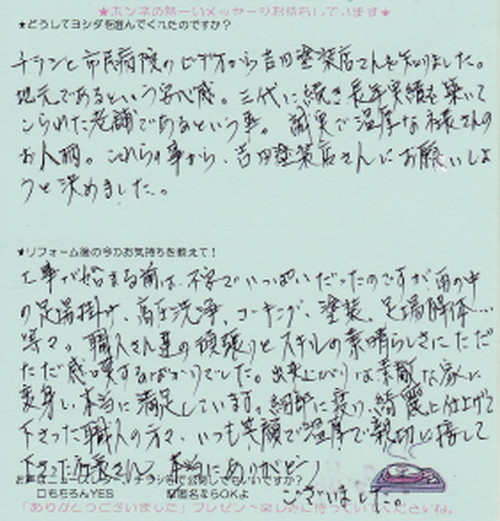 ★ホンネの熱ーいメッセージお待ちしています★
★どうしてヨシダを選んでくれたのですか？
チラシと市民病院のビデオから吉田塗装店さんを知りました。
地元であるという安心感。三代に続き長年実績を築いて
こられた老舗であるという事。誠実で温厚な社長さんの
お人柄。これらの事から、吉田塗装店さんにお願いしよ
うと決めました。
★リフォーム後の今のお気持ちを教えて！
工事が始まる前は、不安でいっぱいだったのですが雨の中
の足場掛け、高圧洗浄、コーキング、塗装、足場解体…
等々。職人さん達の頑張りとスキルの素晴らしさにただ
ただ感嘆するばかりでした。出来上がりは素敵な家に
変身し、本当に満足しています。細部に渡り、綺麗に仕上げて
下さった職人の方々、いつも笑顔で温厚で親切に接して
下さった社長さん、本当にありがとう
お声はニュースレター・チラシなどで公開してもいいですか？
□もちろんYES ■匿名ならOKよ
ございました。
「ありがとうございました」プレゼント楽しみに待っていてくださいね。